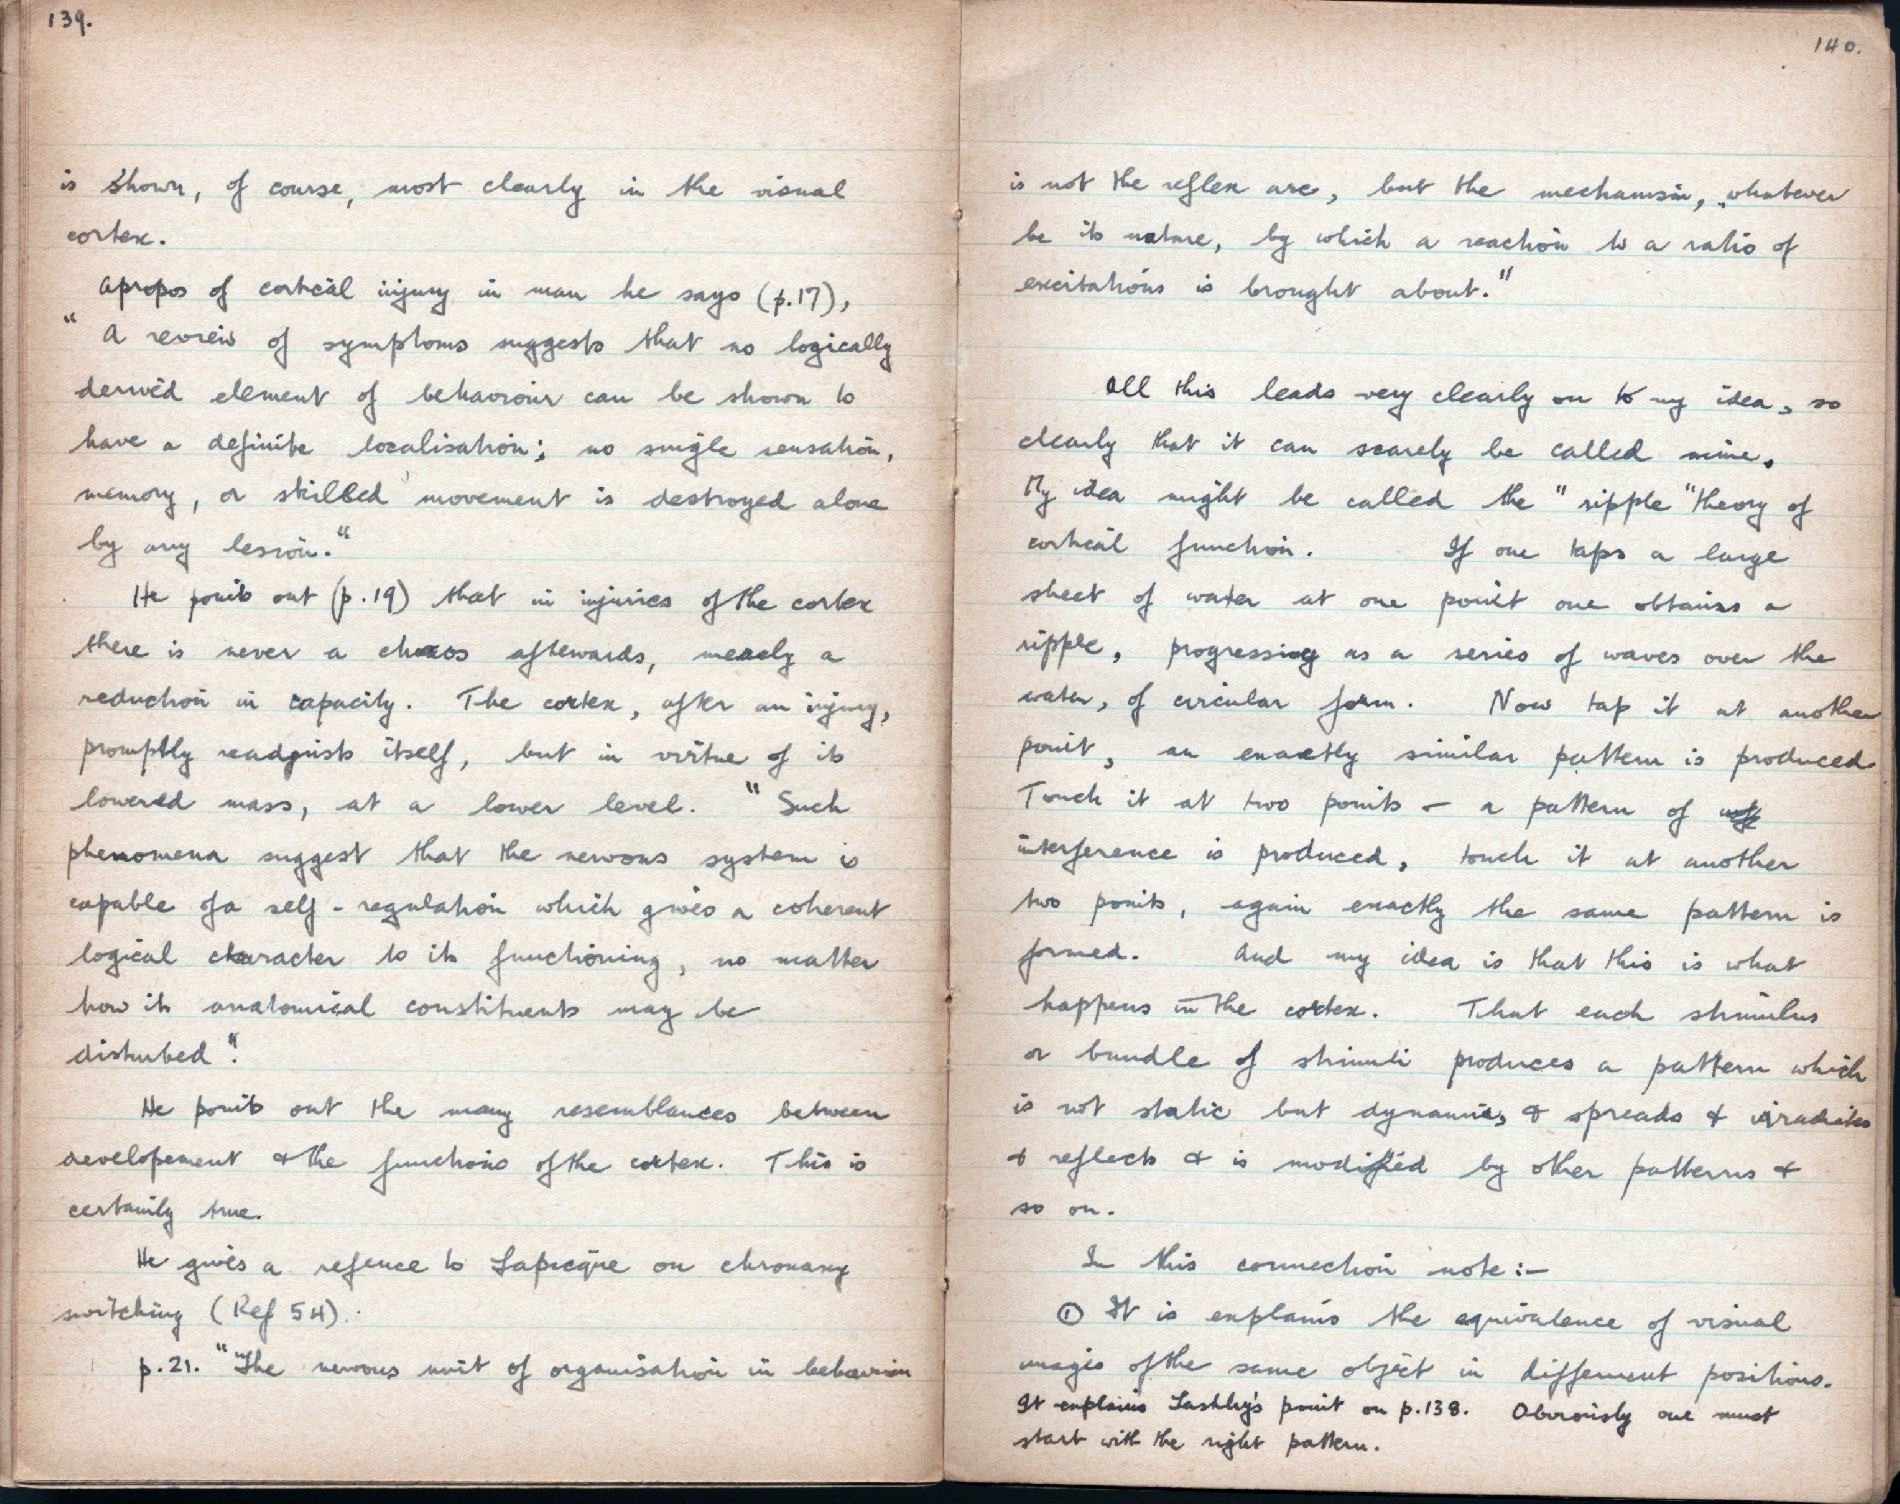 139.
is shown, of course, most clearly in the visual
cortex.
Apropos of cortical injury in man he says (p.17),
"A review of symptoms suggests that no logically
derived element of behaviour can be shown to
have a definite localisation; no single sensation,
memory, or skilled movement is destroyed alone
by any lesion."
He points out (p.19) that in injuries of the cortex
there is never a chaos afterwards, merely a
reduction in capacity. The cortex, after an injury,
promptly readjusts itself, but in virtue of its
lowered mass, at a lower level. "Such
phenomena suggest that the nervous system is
capable of a self-regulation which gives a coherent
logical character to its functioning, no matter
how its anatomical constituents may be
disturbed".
He points out the many resemblances between
developement & the functions of the cortex. This is
certainly true.
He gives a refence to Lapicque on chronaxy
switching (Ref 54).
p.21. "The nervous unit of organisation in behavior
140.
is not the reflex arc, but the mechanism, whatever
be its nature, by which a reaction to a ratio of
excitations is brought about."
All this leads very clearly on to my idea, so
clearly that it can scarely be called mine.
My idea might be called the "ripple" theory of
cortical function. If one taps a large
sheet of water at one point one obtains a
ripple, progressing as a series of waves over the
water, of circular form. Now tap it at another
point, an exactly similar pattern is produced.
Touch it at two points – a pattern of
interference is produced, touch it at another
two points, again exactly the same pattern is
formed. And my idea is that this is what
happens in the cortex. That each stimulus
or bundle of stimuli produces a pattern which
is not static but dynamic, & spreads & irradiates
& reflects & is modified by other patterns &
so on.
In this connection note:–
① It is explains the equivalence of visual
images of the same object in differnent positions.
It explains Lashley's point on p.138. Obviously one must
start with the right pattern.